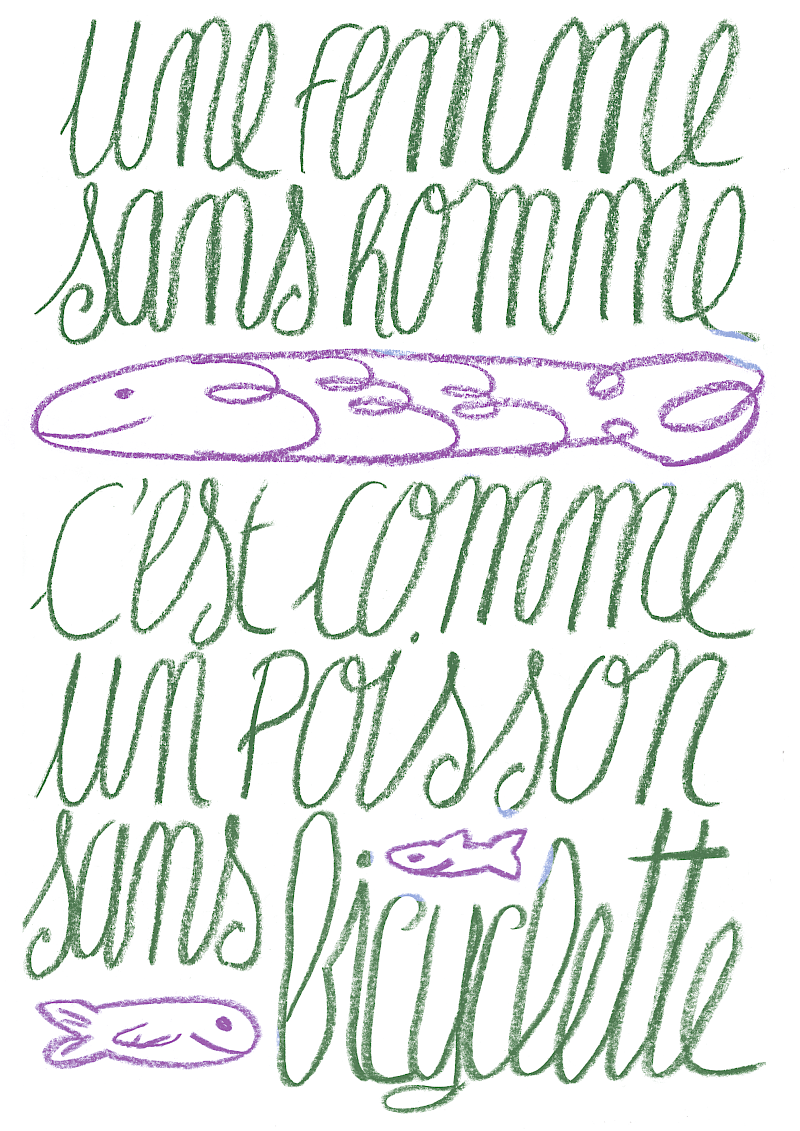 une femme
sans homme
c'est comme
un poisson
sans bicyclette